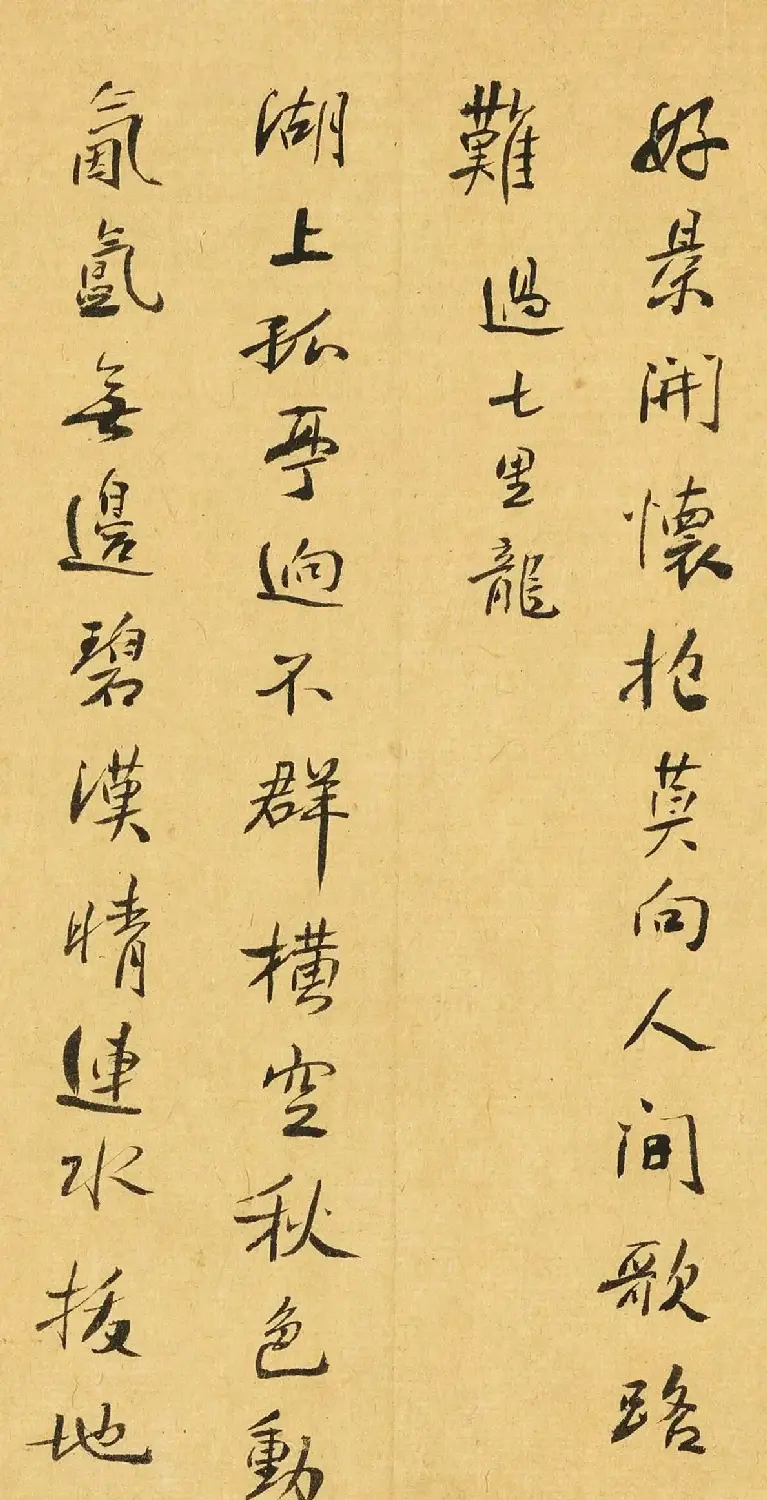 好景開懷抱莫向人間歌路
難過七里龍
湖上孤亭逈不群橫空秋色動
氤氳無邊碧漢晴連水拔地